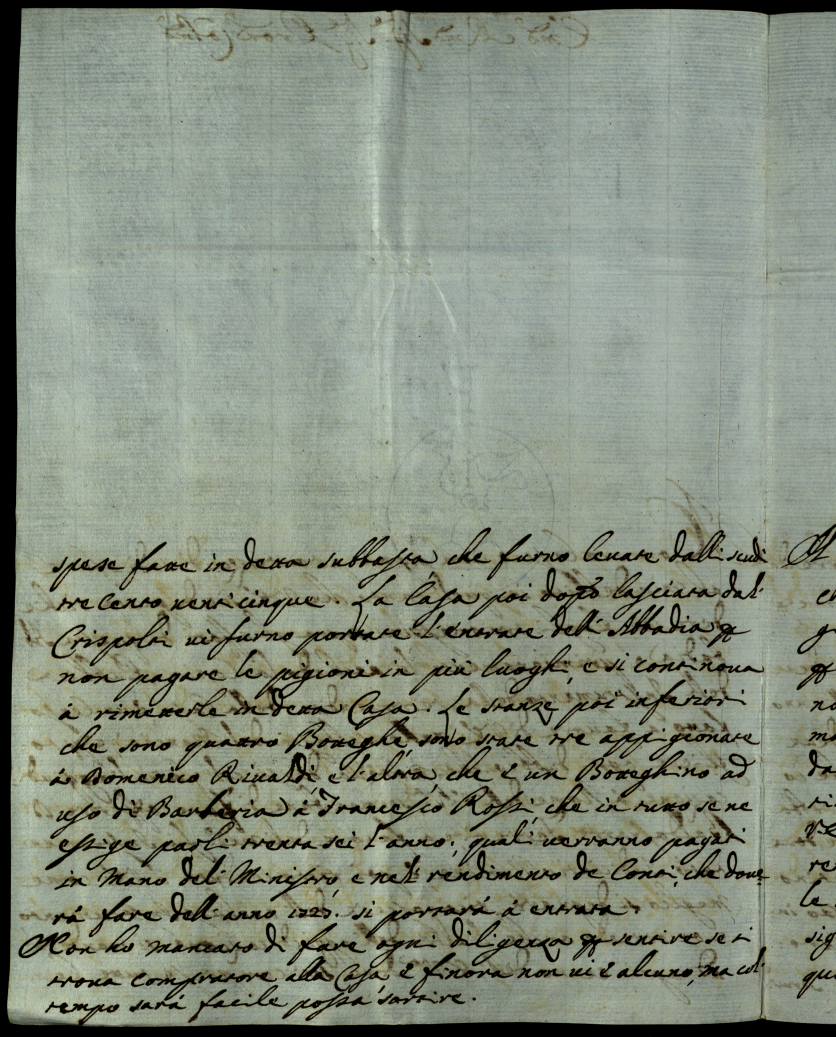 spese fatte in detta subbasta che furno levate dalli scudi
trecento venticinque. La Casa poi dopò lasciata dal
Crispolti vi furno portate l'entrate dell'Abbadia p
non pagare le pigioni in più luoghi, e si continova
à rimetterle in detta Casa. Le stanze poi inferiori
che sono quattro Botteghe, sono state tre appigionate
à Domenico Rivaldi, e l'altra, che è un Boteghino ad
uso di Barberia à Francesco Rossi, che in tutto se ne
essige paoli trenta sei l'anno, quali verranno pagati
in Mano del Ministro, e nel rendimento de Conti, che dove
rà fare dell'anno si portarà à entrata.
Non ho mancato di fare ogni diligenza p sentire se si
trova compratore alla Casa, è finora non vi è alcuno, ma col
tempo sarà facile possa sortire.